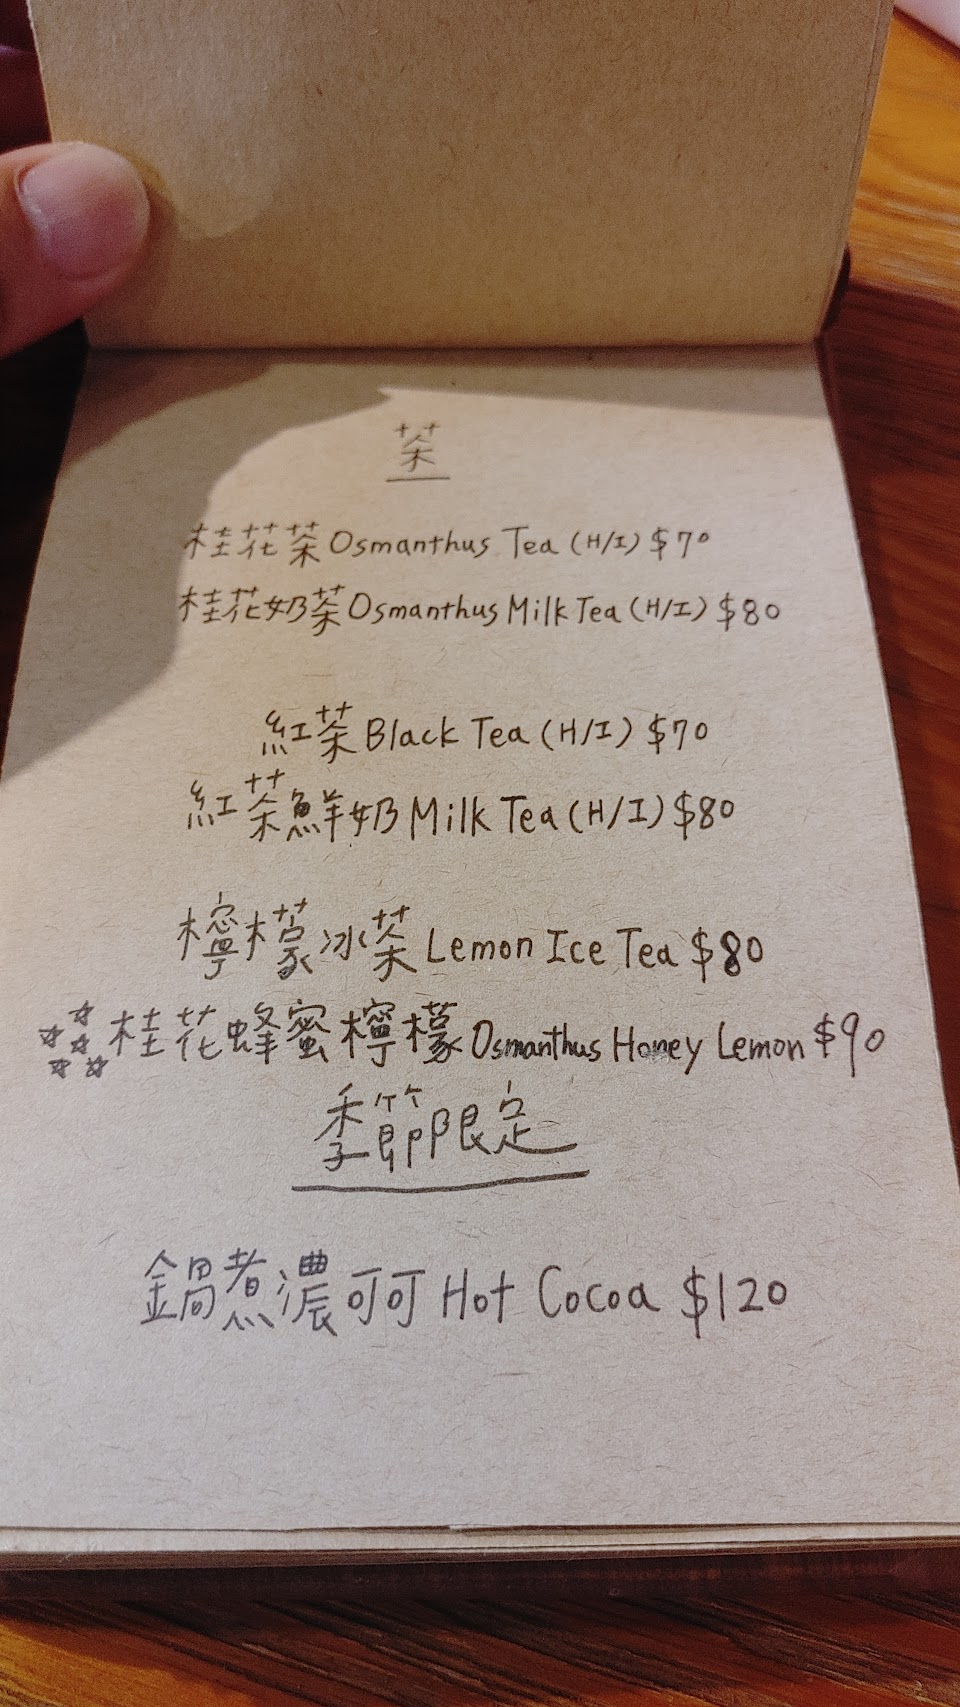 茶
桂花茶 Osmanthus Tea (H/I) $70
桂花奶茶 Osmanthus Milk Tea (H/I) $80
紅茶 Black Tea (H/I) $70
紅茶鮮奶 Milk Tea (H/I) $80
檸檬冰茶 Lemon Ice Tea $80
桂花蜂蜜檸檬 Osmanthus Honey Lemon $90
季節限定
鍋煮濃可可 Hot Cocoa $120